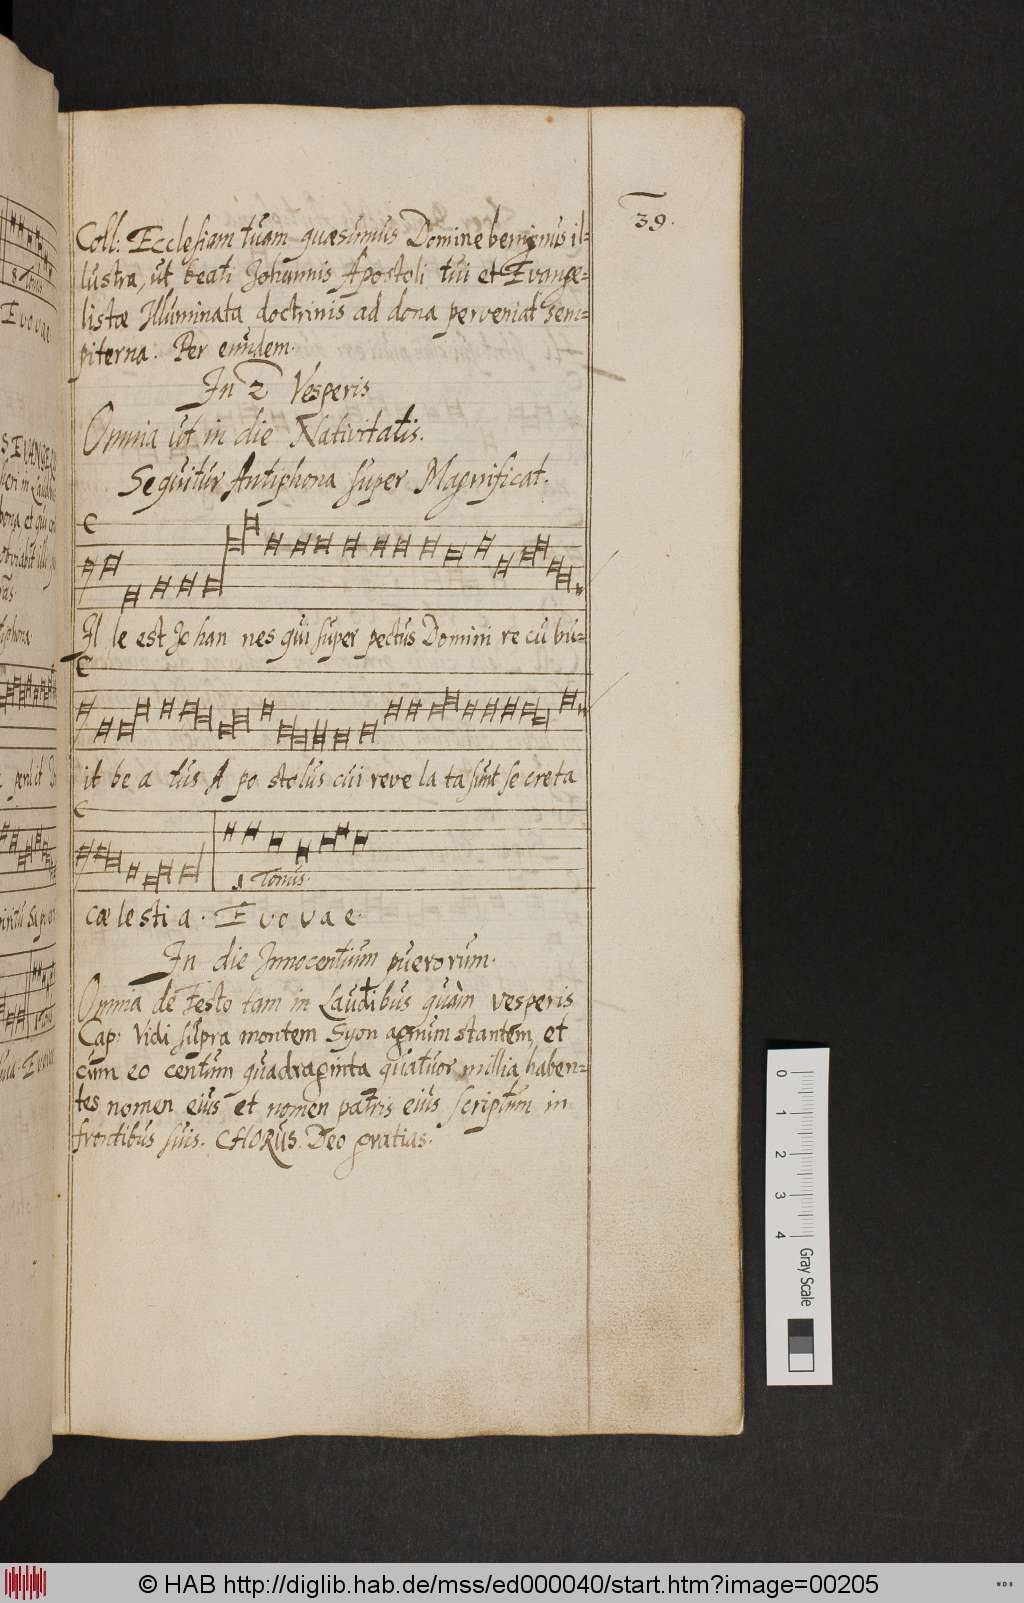 39.
Coll: Ecclesiam tuam quæsumus Domine benignus il=
lustra, ut beati Johannis Apostoli tui et Evange=
listæ Illuminata doctrinis ad dona perveniat sem=
piterna. Per eundem.
In 2 Vesperis
Omnia ut in die Nativitatis.
Sequitur Antiphona super Magnificat.
Il le est Jo han nes qui super pectus Domini re cu bu=
it be a tus A po stolus cui reve la ta sunt se creta
1 Tonus.
cæ le sti a. E v o v a e.
In die Innocentium puerorum.
Omnia de Festo tam in Laudibus quàm vesperis
Cap: Vidi supra montem Syon agnum stantem, et
cum eo centum quadraginta quatuor millia haben=
tes nomen eius et nomen patris eius scriptum in
frontibus suis. CHORUS. Deo gratias.
0 1 2 3 4 Gray Scale
© HAB http://diglib.hab.de/mss/ed000040/start.htm?image=00205